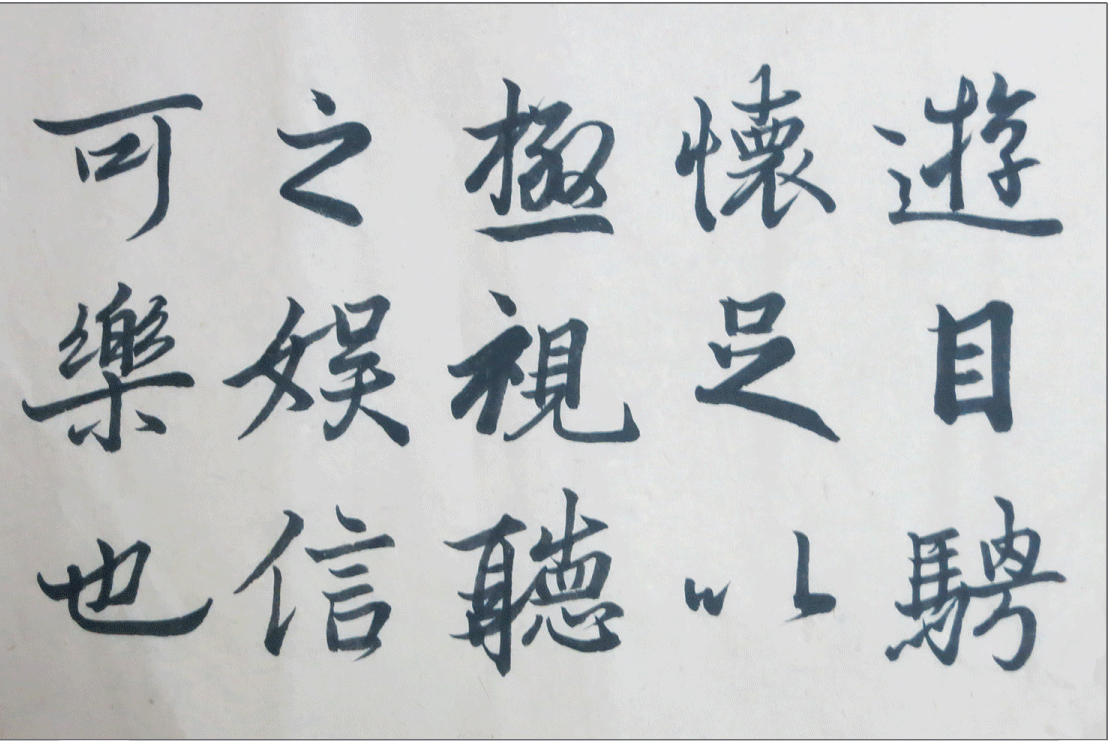 遊目騁
懷足以
極視聽
之娛信
可樂也